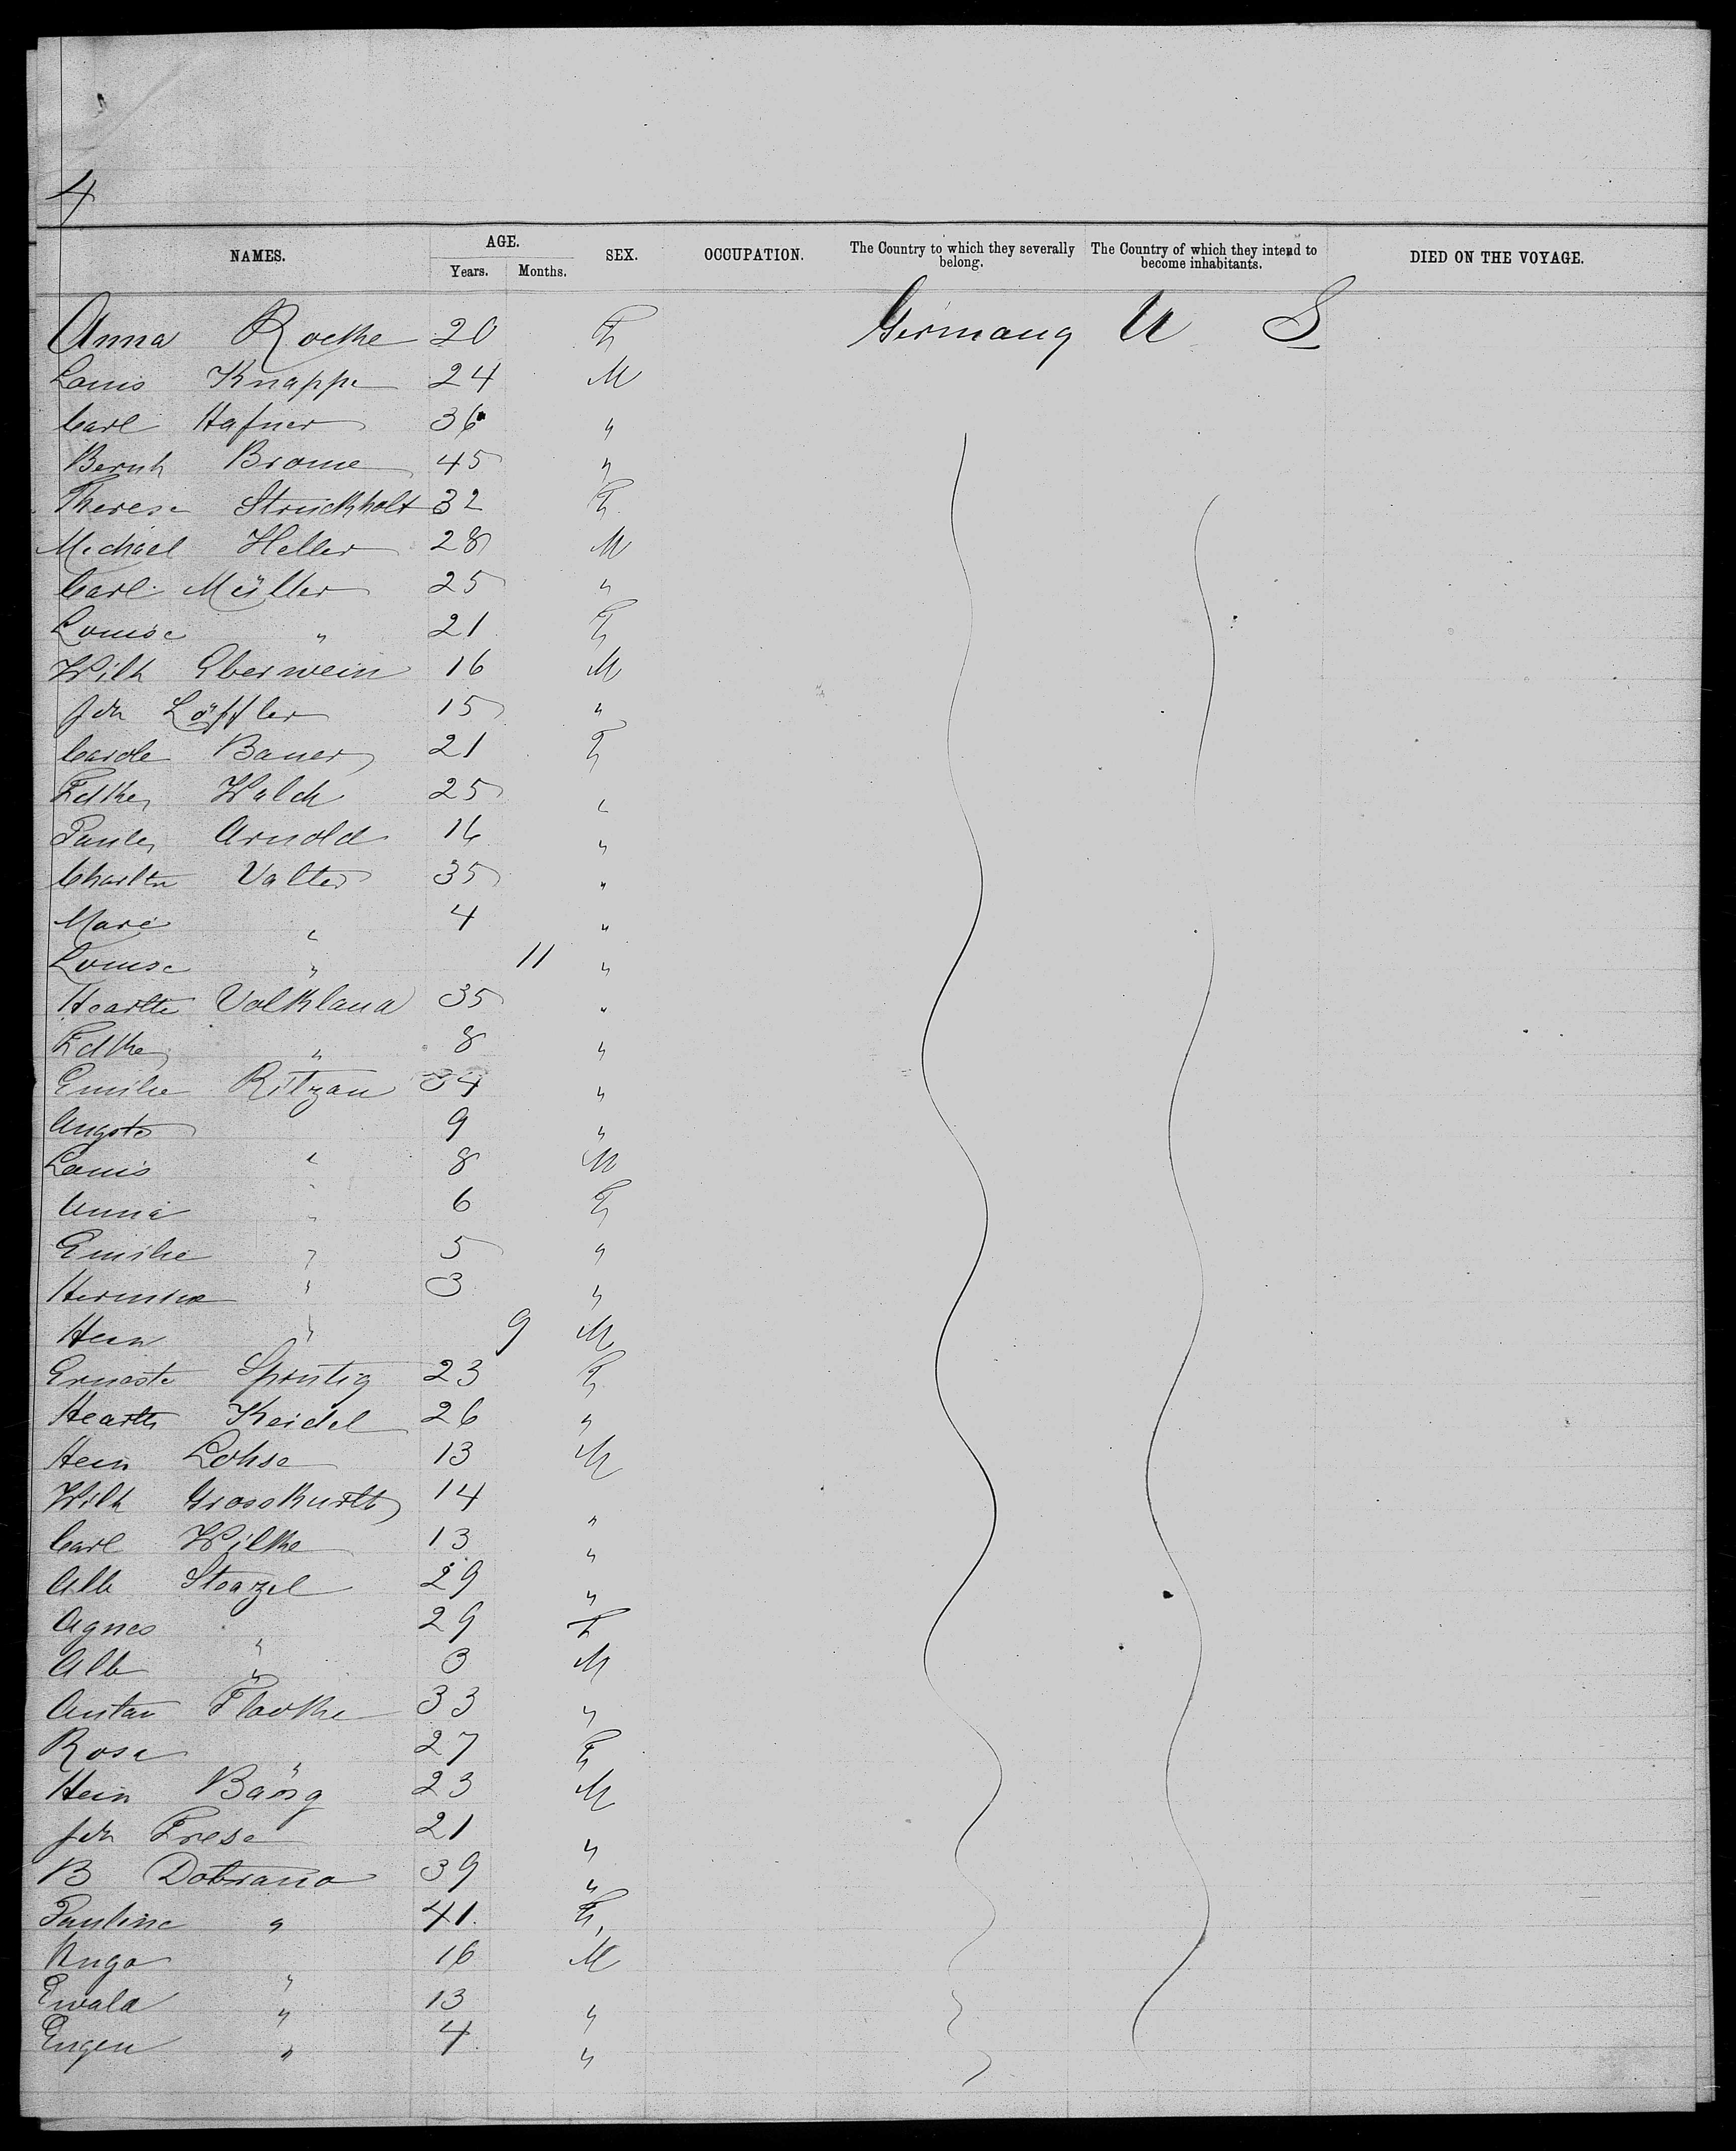 4
NAMES. AGE. Years. Months. SEX. OCCUPATION. The Country to which they severally belong. The Country of which they intend to become inhabitants. DIED ON THE VOYAGE.
Anna Rocke 20 F Germany U S
Louis Knappe 24 M
Carl Hafner 36 "
Bernh Brome 45 "
Therese Struckholt 32 F
Michael Heller 28 M
Carl Müller 25 "
Louise " 21 F
Wilh Eberwein 16 M
Joh Löffler 15 "
Carole Bauer 21 F
Walch 25 "
Arnold 16 "
Valter 35 "
Marie " 4 "
Louise " 11 "
35 "
" 8 "
Emilie Ritzau 34 "
9 "
Louis " 8 M
Anna " 6 F
Emilie " 5 "
Hermine " 3 "
Hein " 9 M
Erneste 23 F
Keidel 26 "
Hein Lohse 13 M
Wilh Grosskurth 14 "
Carl Wilke 13 "
Alb 29 "
Agnes " 29 F
Alb " 3 M
Anton 33 "
Rosa " 27 F
Hein 23 M
Joh Frese 21 "
B 39 "
Pauline " 41 F
Hugo " 16 M
Ewald " 13 "
Eugen " 4 "